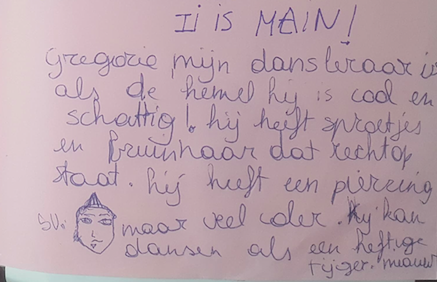 Ij is MAIN!
Gregorie, mijn dansleraar is
als de hemel hij is cool en
schattig! hij heeft sproetjes
en bruinhaar dat rechtop
staat. hij heeft een piercing
maar veel coler. hij kan
dansen als een heftige
tijger. miauw